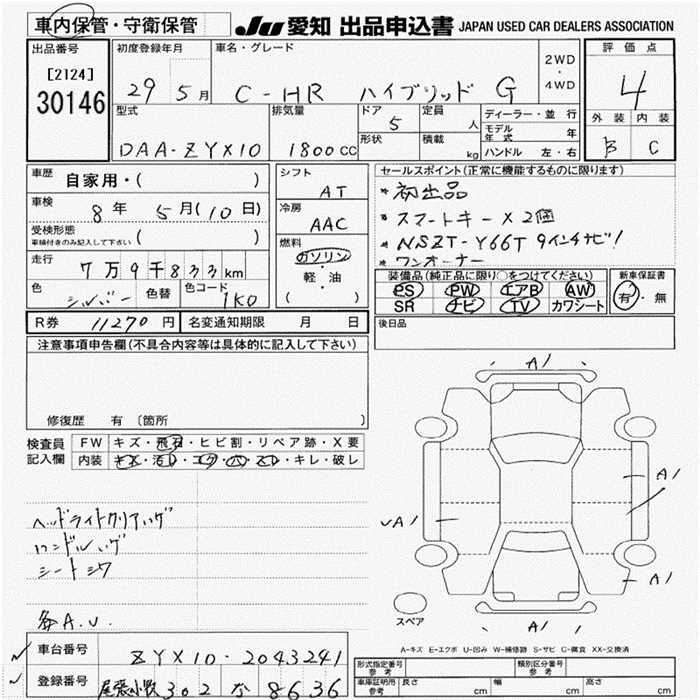 車内保管・守衛保管 JU 愛知 出品申込書 JAPAN USED CAR DEALERS ASSOCIATION
出品番号 初度登録年月 車名・グレード 2WD・4WD 評価点
[2124]
30146 29 5月 C-HR ハイブリッド G 4
型式 排気量 ドア 定員 ディーラー・並行 外装 内装
5 人 モデル年式 年
形状 積載 B C
DAA-ZYX10 1800CC kg ハンドル 左・右
車歴 自家用・( ) シフト AT セールスポイント(正常に機能するものに限ります)
* 初出品
車検 8年 5月(10日) 冷房 AAC * スマートキー×2個
受検形態 車検付きのみ記入して下さい ( ) 燃料 * NSZT-Y66T 9インチナビ!
ガソリン・軽・油 ( ) * ワンオーナー
走行 7万9千833km 装備品(純正品に限り○をつけてください) 新車保証書
PS PW エアB AW 有・無
色 シルバー 色替 色コード 1K0 SR ナビ TV カワシート
R券 11270円 名変通知期限 月 日 後日品
注意事項申告欄(不具合内容等は具体的に記入して下さい)
修復歴 有 〔箇所 〕
検査員記入欄 FW キズ・飛石・ヒビ割・リペア跡・X要
内装 キズ・汚レ・コゲ・穴・スレ・キレ・破レ
A1
A1
A1
A1
A1
ヘッドライトクリアハゲ
ハンドルハゲ
シートシワ
スペア
各A.U.
A-キズ E-エクボ U-凹み W-補修跡 S-サビ C-腐食 XX-交換済
車台番号 ZYX10-2043241
型式指定番号 参考 類別区分番号 参考
登録番号 尾張小牧 302 な 8636
車庫証明用 参考 長さ cm 幅 cm 高さ cm